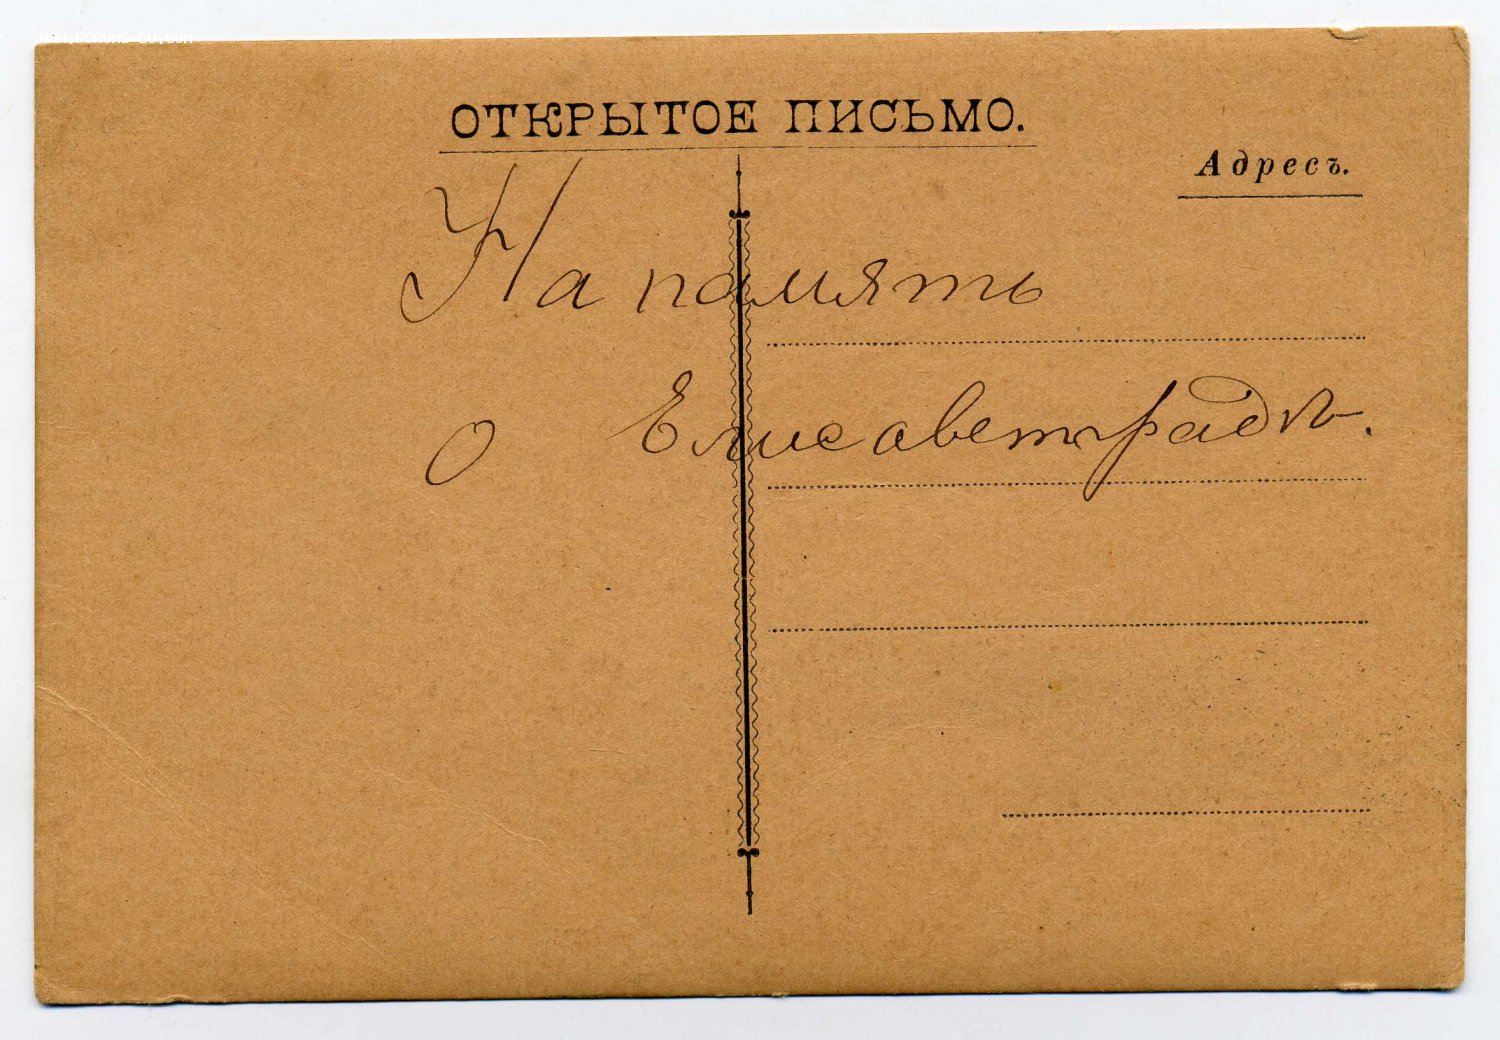 WWW.FORUMS-SU.COM
ОТКРЫТОЕ ПИСЬМО.
Адресъ.
На память
о Елисаветградѣ.